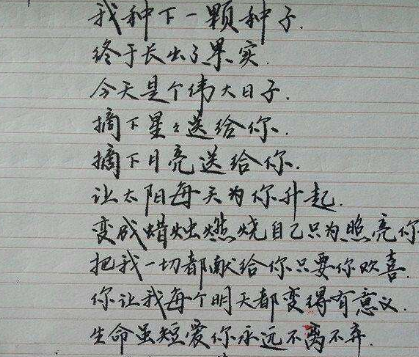 我种下一颗种子.
终于长出了果实.
今天是个伟大日子.
摘下星々送给你.
摘下月亮送给你.
让太阳每天为你升起.
变成蜡烛燃烧自己只为照亮你
把我一切都献给你只要你欢喜.
你让我每个明天都变得有意义.
生命虽短爱你永远不离不弃.